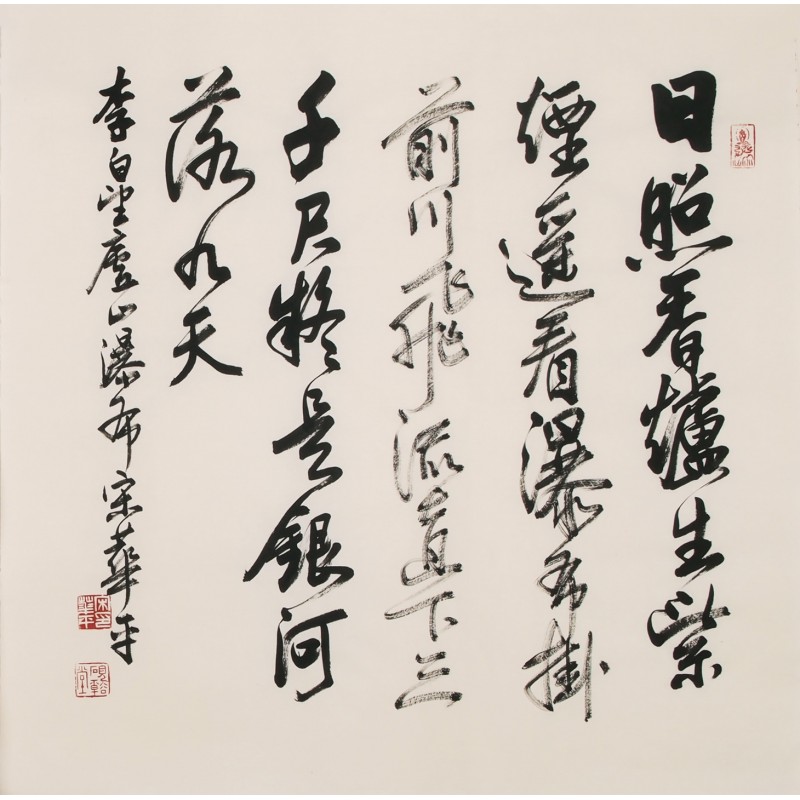 日照香爐生紫
煙遥看瀑布掛
前川飛流直下三
千尺疑是銀河
落九天
李白望廬山瀑布 宋華平